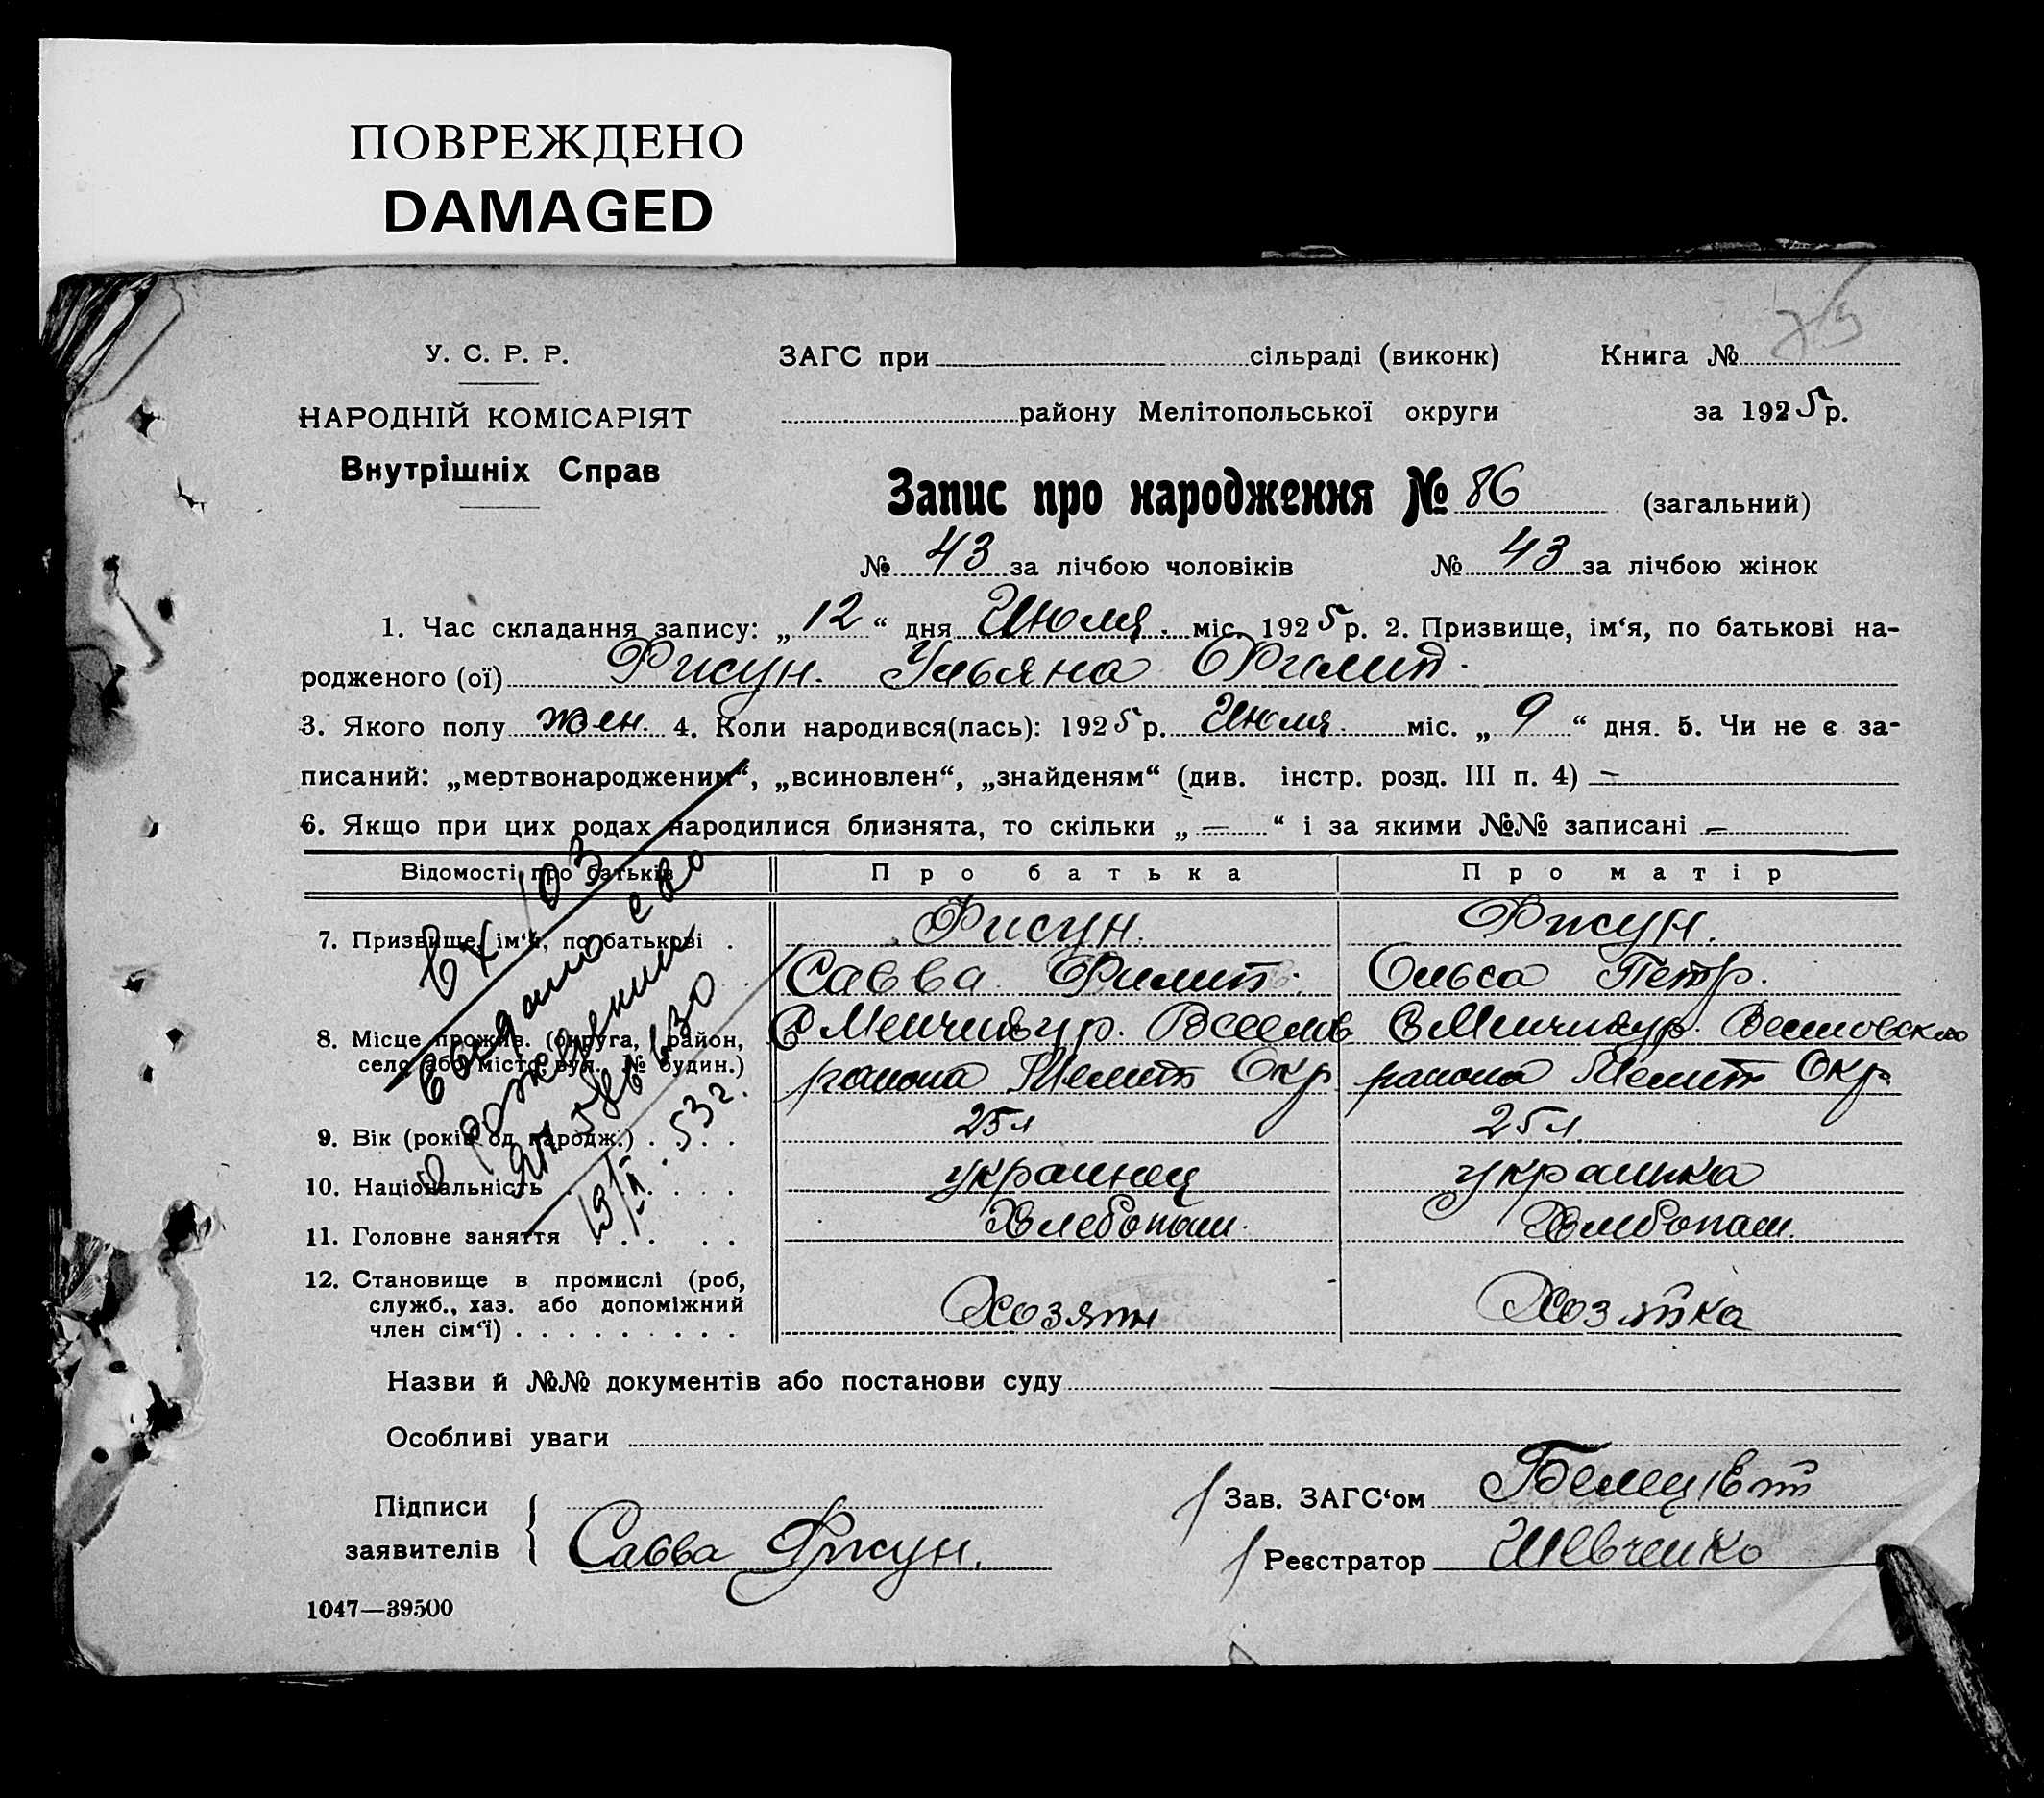 ПОВРЕЖДЕНО
DAMAGED
У. С. Р. Р.
НАРОДНІЙ КОМІСАРІЯТ
Внутрішніх Справ
ЗАГС при сільраді (виконк)
Книга №
району Мелітопольської округи
за 1925 р.
Запис про народження № 86 (загальний)
№ 43 за лічбою чоловіків № 43 за лічбою жінок
1. Час складання запису: „12“ дня Июля. міс. 1925 р. 2. Призвище, ім‘я, по батькові на-
родженого (ої) Фисун. Ульяна Филип.
3. Якого полу жен. 4. Коли народився(лась): 1925 р. Июля. міс. „9“ дня. 5. Чи не є за-
писаний: „мертвонародженим“, „всиновлен“, „знайденям“ (див. інстр. розд. III п. 4) —
6. Якщо при цих родах народилися близнята, то скільки „—“ і за якими №№ записані —
Відомості про батьків Про батька Про матір
7. Призвище, ім‘я, по батькові . Фисун. Фисун.
Савва Филип. Ольга Петр.
8. Місце прожив. (округа, район,
село або місто, вул. № будин.)
С Менчикур. Веселов С Менчикур. Веселовского
района Мелит Окр района Мелит Окр.
9. Вік (років од народж.) . . . . 25 л 25 л.
10. Національність . . . . . украинец украинка
11. Головне заняття . . . . . Хлебопаш. Хлебопаш.
12. Становище в промислі (роб,
служб., хаз. або допоміжний
член сім‘ї) . . . . . . . . . Хозяин Хозяйка
вх 103
выдано сво
о рождении
586430
19/II. 53 г.
Назви й №№ документів або постанови суду
Особливі уваги
Підписи
заявителів
Савва Фисун.
Зав. ЗАГС‘ом
Реєстратор Шевченко
1047—39500